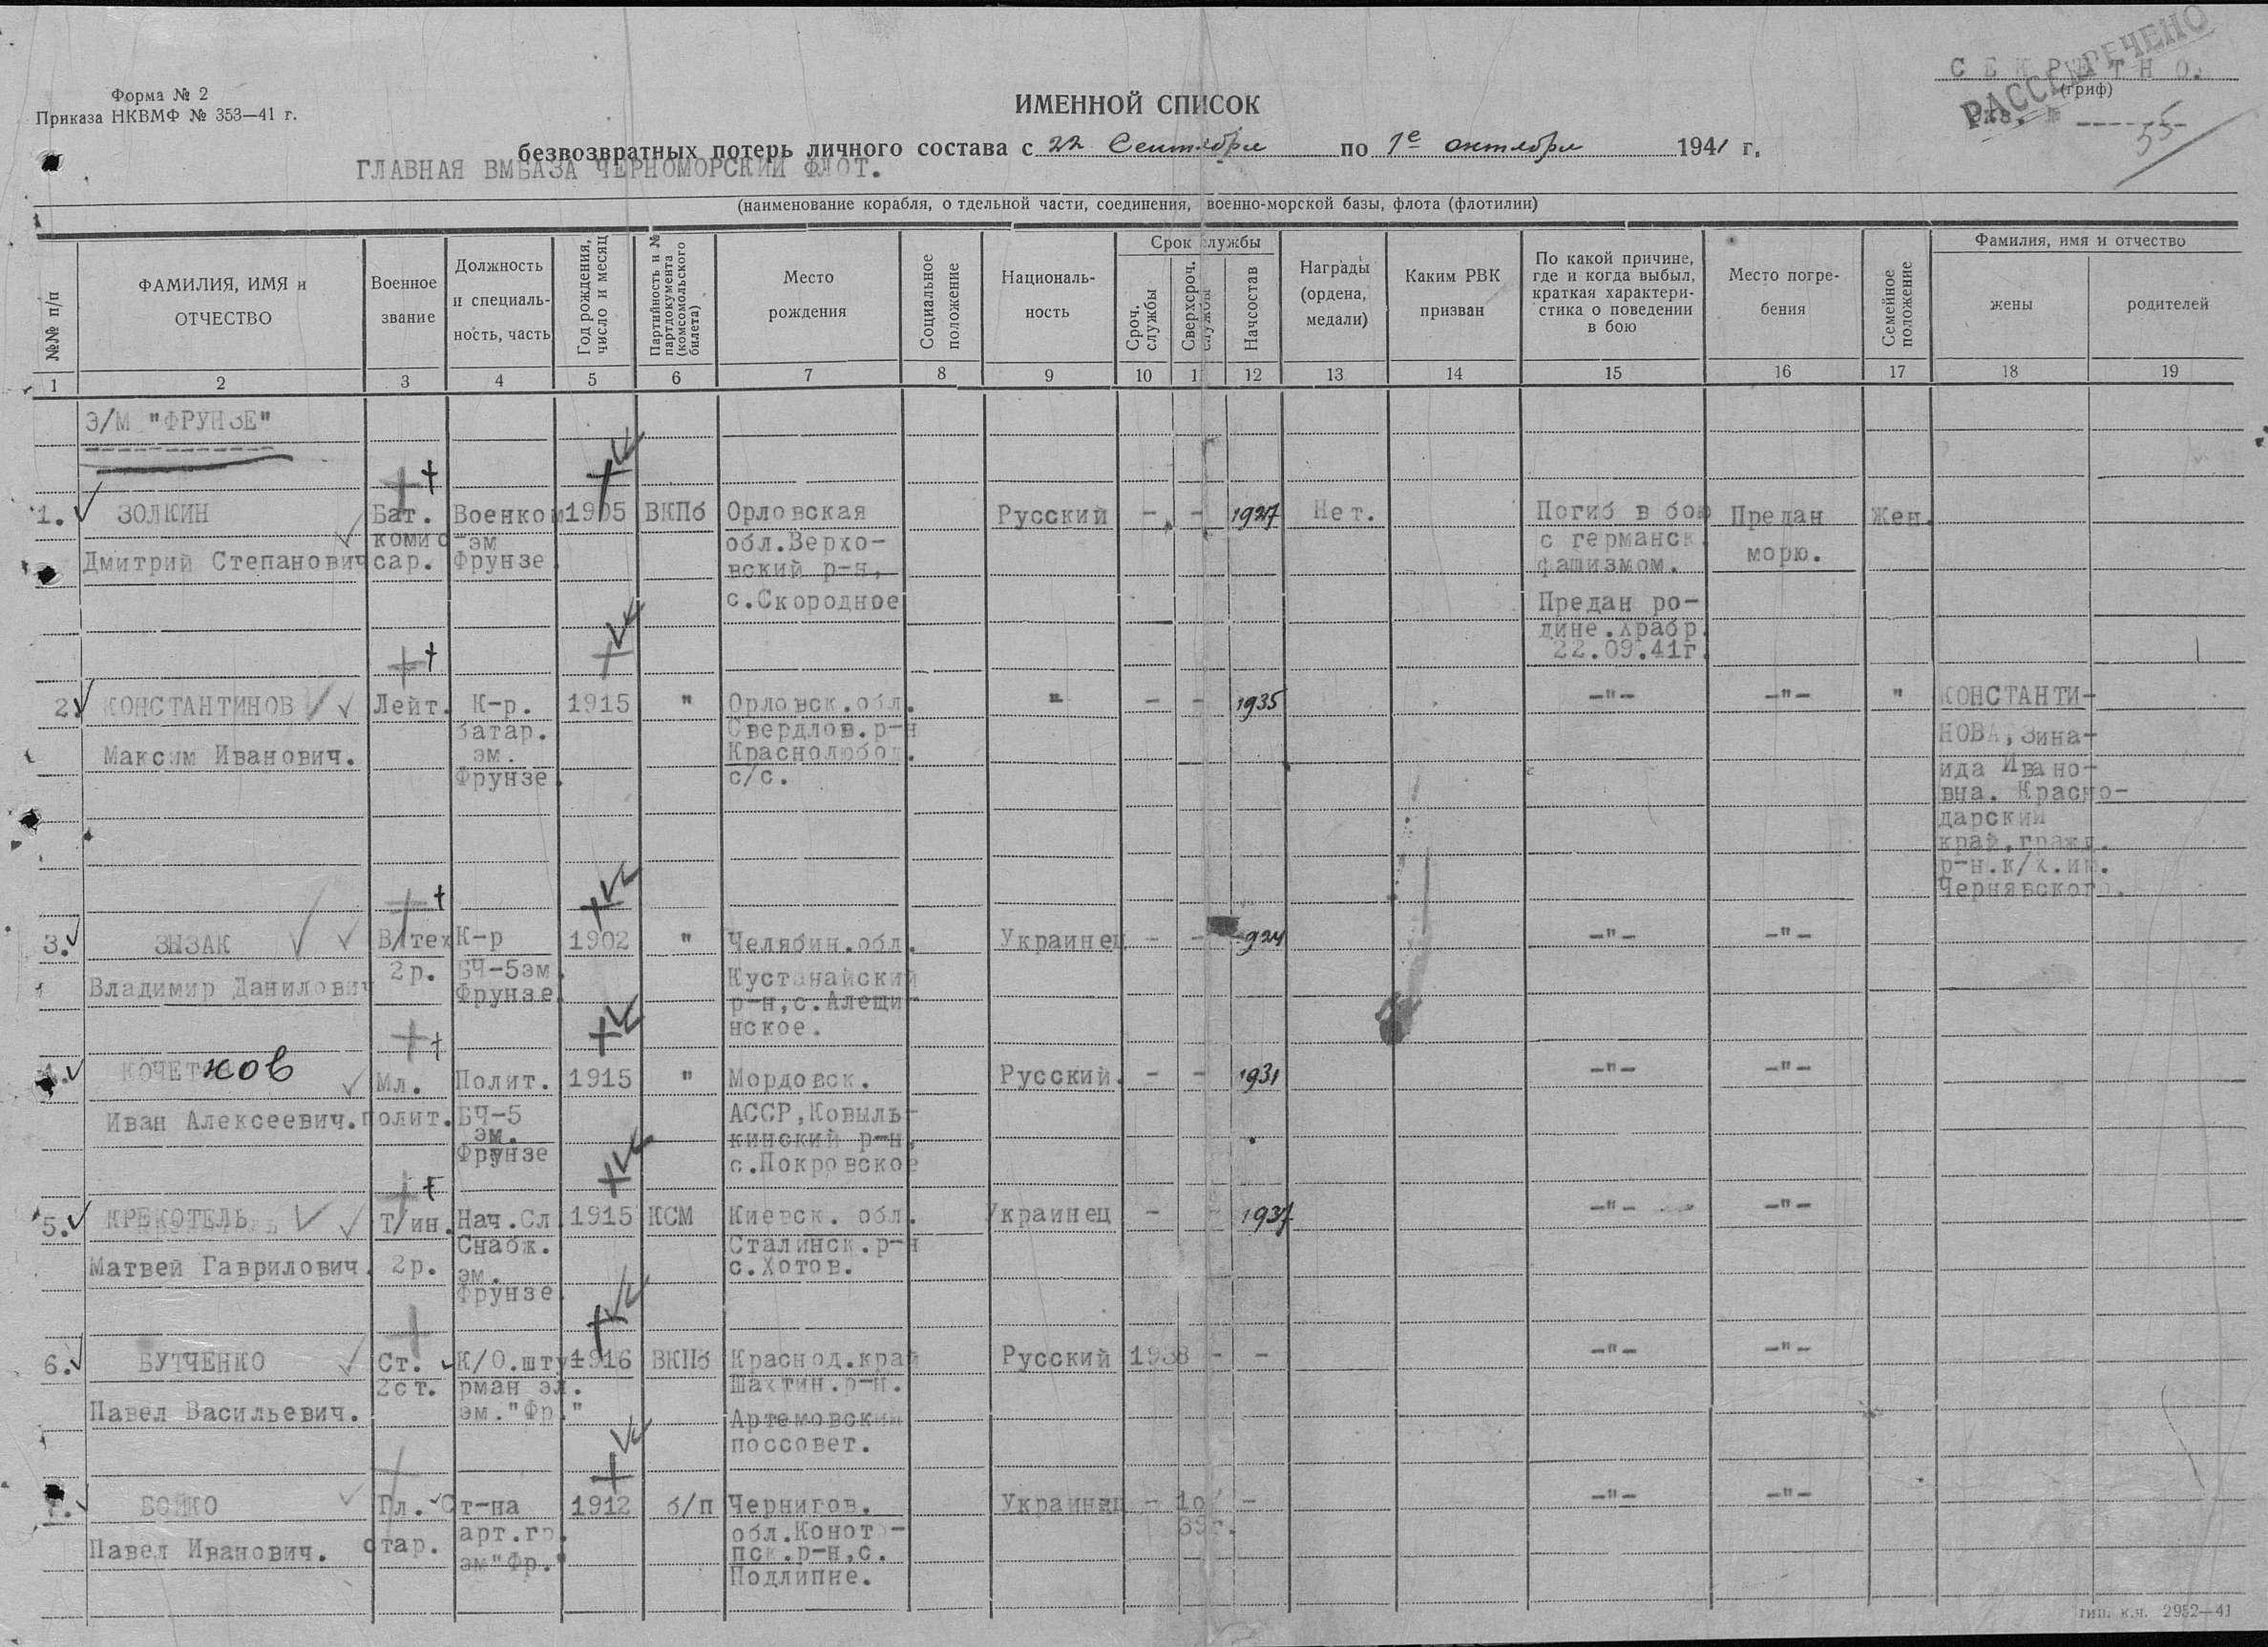 Форма № 2
Приказа НКВМФ № 353—41 г.
СЕКРЕТНО.
(гриф)
РАССЕКРЕЧЕНО
Экз. №
55
ИМЕННОЙ СПИСОК
безвозвратных потерь личного состава с 22 Сентября по 1е октября 1941 г.
ГЛАВНАЯ ВМБАЗА ЧЕРНОМОРСКИЙ ФЛОТ.
(наименование корабля, о тдельной части, соединения, военно-морской базы, флота (флотилии)
№№ п/п
ФАМИЛИЯ, ИМЯ и
ОТЧЕСТВО
Военное
звание
Должность
и специаль-
ность, часть
Год рождения,
число и месяц
Партийность и №
партдокумента
(комсомольского
билета)
Место
рождения
Социальное
положение
Националь-
ность
Срок службы
Сроч.
службы
Сверхсроч.
службы
Начсостав
Награды
(ордена,
медали)
Каким РВК
призван
По какой причине,
где и когда выбыл,
краткая характери-
стика о поведении
в бою
Место погре-
бения
Семейное
положение
Фамилия, имя и отчество
жены
родителей
1 2 3 4 5 6 7 8 9 10 1 12 13 14 15 16 17 18 19
Э/М "ФРУНЗЕ"
1. ЗОЛКИН
Дмитрий Степанович
Бат.
комис
сар.
Военком
-эм
Фрунзе
1905
ВКПб
Орловская
обл.Верхо-
вский р-н,
с.Скородное
Русский
- - 1927
Нет.
Погиб в бою
с германск.
фашизмом.
Предан ро-
дине.Храбр.
22.09.41г.
Предан
морю.
Жен.
2. КОНСТАНТИНОВ
Максим Иванович.
Лейт.
К-р.
батар.
эм.
Фрунзе.
1915
"
Орловск.обл.
Свердлов.р-н
Краснолюбод.
с/с.
"
- - 1935
-"-
-"-
"
КОНСТАНТИ-
НОВА,Зина-
ида Ивано-
вна. Красно-
дарский
край,гражд.
р-н.к/х.им.
Чернявского.
3. ЗЫЗАК
Владимир Данилович
В/тех
2р.
К-р
БЧ-5эм.
Фрунзе.
1902
"
Челябин.обл.
Кустанайский
р-н,с.Алещи-
нское.
Украинец
- - 924
-"-
-"-
4. КОЧЕТков
Иван Алексеевич.
Мл.
полит.
Полит.
БЧ-5
эм.
Фрунзе
1915
"
Мордовск.
АССР,Ковыль-
кинский р-н,
с.Покровское
Русский.
- - 1931
-"-
-"-
5. КРЕКОТЕЛЬ
Матвей Гаврилович.
Т/ин.
2р.
Нач.Сл.
Снабж.
эм.
Фрунзе.
1915
КСМ
Киевск. обл.
Сталинск.р-н
с.Хотов.
Украинец
- 1937
-"-
-"-
6. БУТЧЕНКО
Павел Васильевич.
Ст.
2ст.
К/О.шту-
рман эл.
эм."Фр."
1916
ВКПб
Краснод.край
Шахтин.р-н.
Артемовский
поссовет.
Русский
1938 - -
-"-
-"-
7. БОЙКО
Павел Иванович.
Гл.
стар.
Ст-на
арт.гр.
эм"Фр."
1912
б/п
Чернигов.
обл.Коното-
пск.р-н,с.
Подлипне.
Украинец
- -
39г.
-"-
-"-
тип. к.я. 2952—41